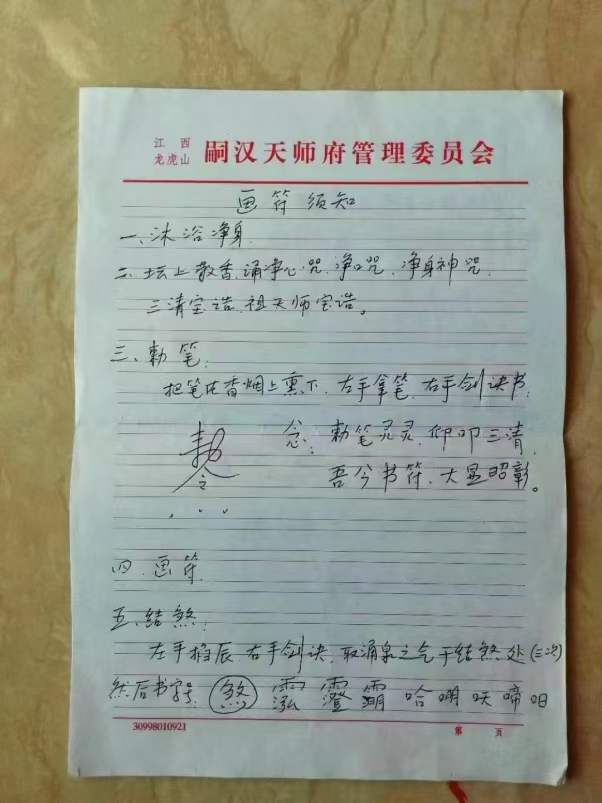 江西
龙虎山
嗣汉天师府管理委员会
画符须知
一、沐浴净身
二、坛上散香，诵净心咒、净口咒、净身神咒、
三清宝诰、祖天师宝诰。
三、勅笔：
把笔在香烟上熏下，左手拿笔，右手剑诀书：
勅令
念：勅笔灵灵，仰叩三清，
吾今书符，大显昭彰。
四、画符
五、结煞：
左手掐辰，右手剑诀，取涌泉之气于结煞处(三次)
然后书 煞
30998010921
第 页